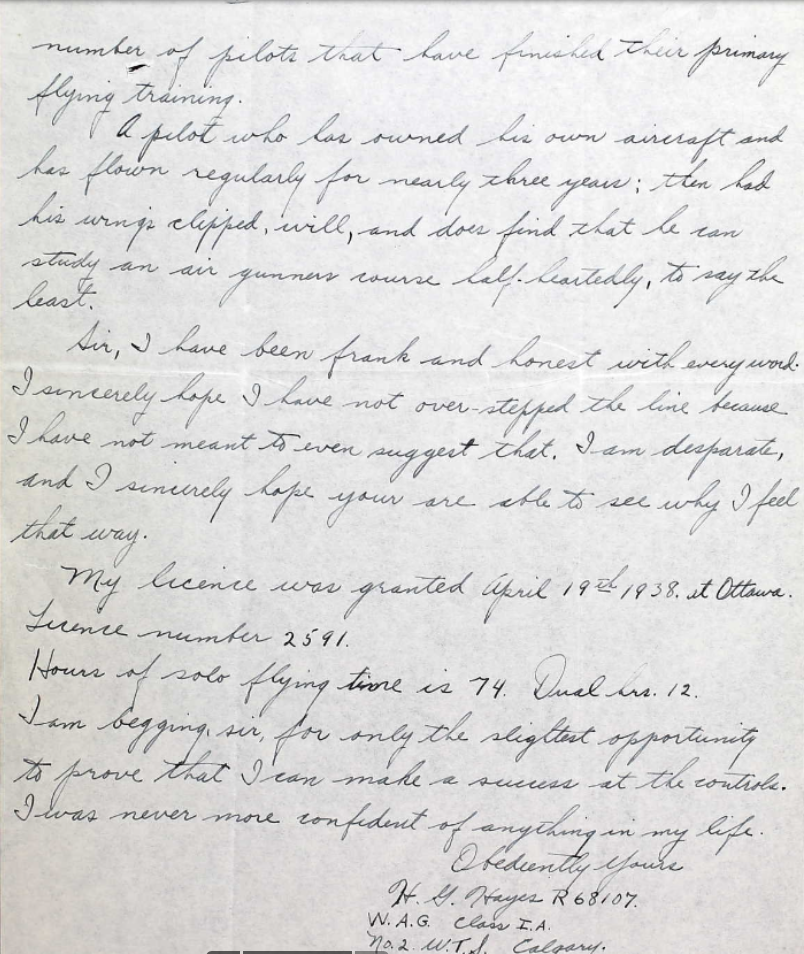 number of pilots that have finished their primary
flying training.
A pilot who has owned his own aircraft and
has flown regularly for nearly three years; then had
his wings clipped, will, and does find that he can
study an air gunners course half-heartedly, to say the
least.
Sir, I have been frank and honest with every word.
I sincerely hope I have not over-stepped the line because
I have not meant to even suggest that. I am desparate,
and I sincerely hope your are able to see why I feel
that way.
My licence was granted April 19th 1938. at Ottawa.
Licence number 2591.
Hours of solo flying time is 74. Dual hrs. 12.
I am begging, sir, for only the sligltest opportunity
to prove that I can make a success at the controls.
I was never more confident of anything in my life.
Obediently Yours
H. G. Hayes R68107.
W.A.G. Class I.A.
No. 2. W.T.S. Calgary.